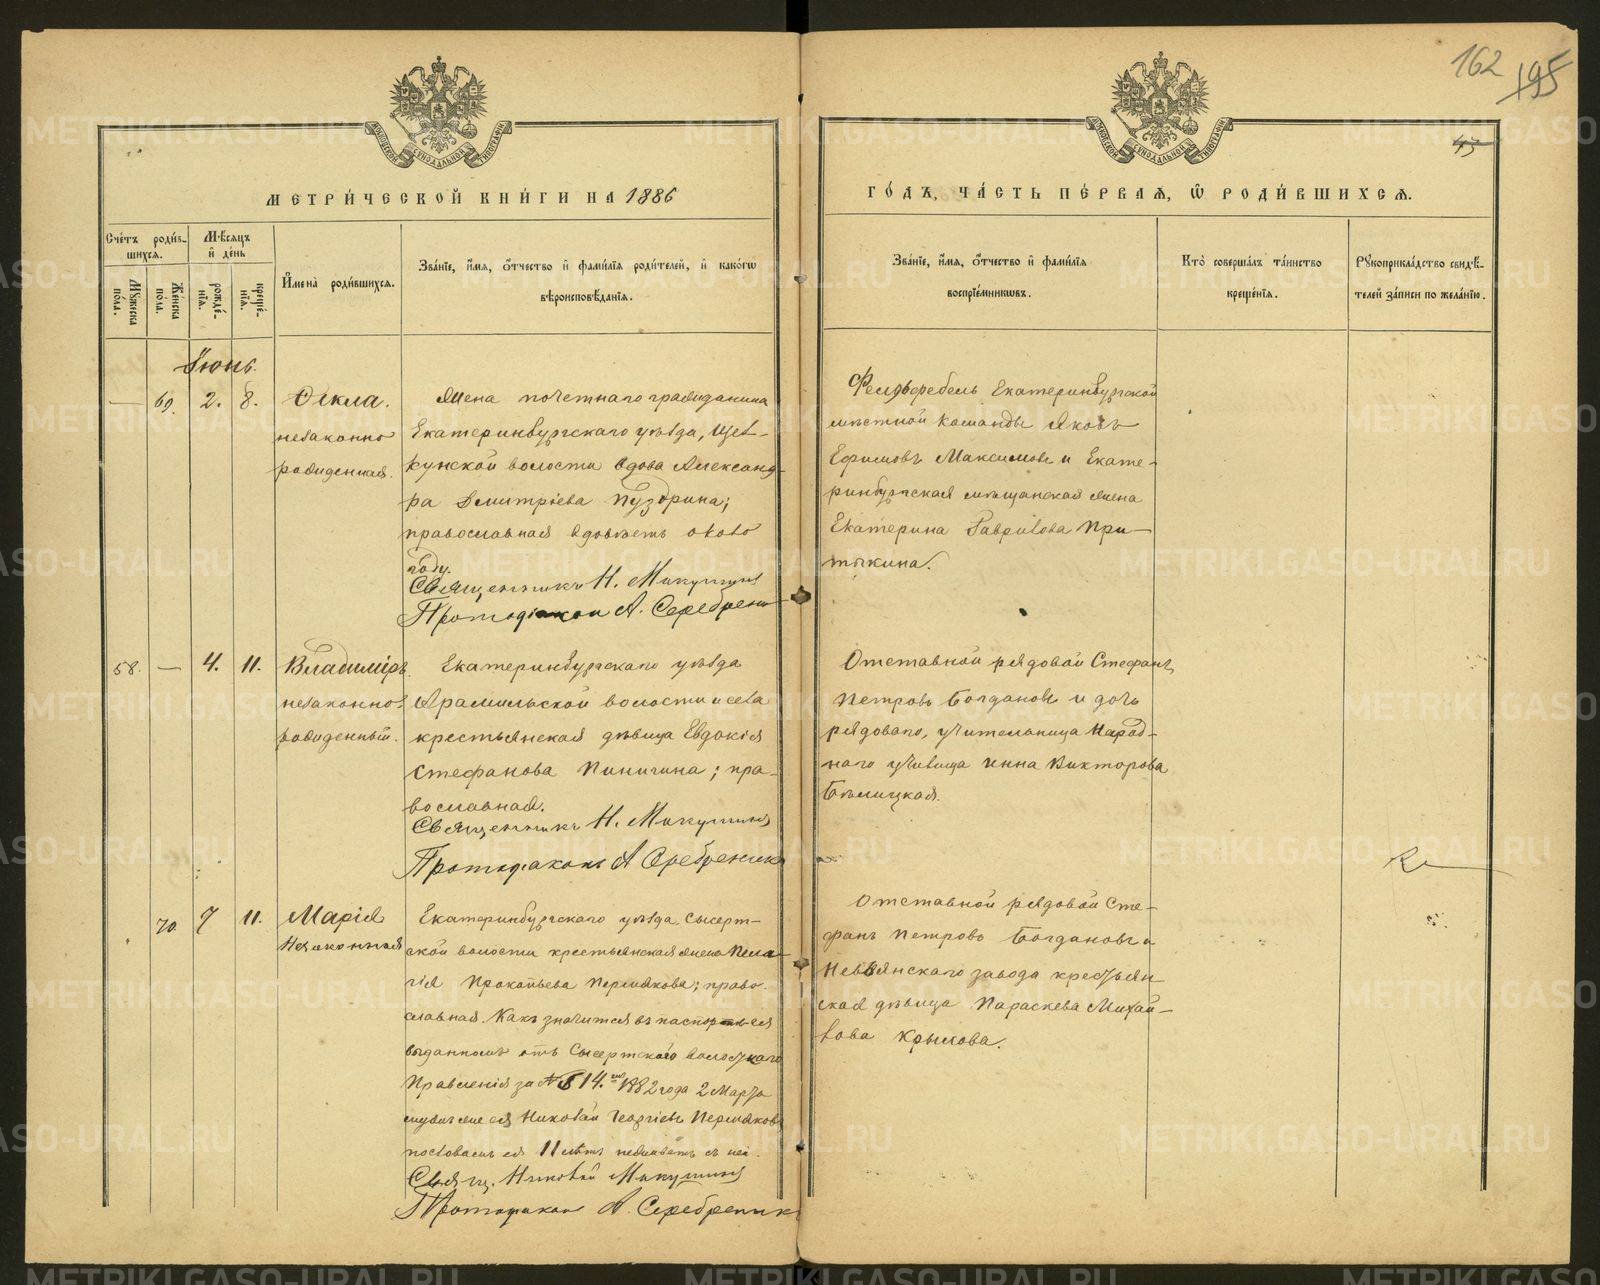 162
195
45
МЕТРИ́ЧЕСКОЙ КНИ́ГИ НА 1886
ГО́ДЪ, ЧА́СТЬ ПЕ́РВАЯ, Ѡ РОДИ́ВШИХСЯ.
Сче́тъ роди́в-
шихся.
Мѣ́сяцъ
и҆ де́нь
Мꙋ́жеска
по́ла.
Же́нска
по́ла.
рожде́-
нїя.
креще́-
нїя.
И҆мена̀ роди́вшихся.
Зва́нїе, и҆́мя, ѻ҆́тчество и҆ фами́лїя роди́телей, и҆ како́гѡ
вѣроисповѣ́данїя.
Зва́нїе, и҆́мя, ѻ҆́тчество и҆ фами́лїя
воспрїе́мникѡвъ.
Кто̀ соверша́лъ та́инство
креще́нїя.
Рꙋкоприкла́дство свидѣ́-
телей за́писи по жела́нїю.
Іюнь.
— 69. 2. 8. Ѳекла.
незаконно
рожденная.
Жена почетнаго гражданина
Екатеринбургскаго уѣзда, Щел-
кунской волости вдова Александ-
ра Дмитріева Пуздрина;
православная вдовѣетъ около
году.
Священникъ Н. Микушинъ
Протодіаконъ А. Серебрени
Фельдфебель Екатеринбургской
мѣстной команды Яковъ
Ефимовъ Максимовъ и Екате-
ринбургская мѣщанская жена
Екатерина Гаврилова При-
тыкина.
58. — 4. 11. Владиміръ.
незаконно-
рожденный.
Екатеринбургскаго уѣзда
Арамильской волости и села
крестьянская дѣвица Евдокія
Стефанова Пинигина; пра-
вославная.
Священникъ Н. Микушинъ
Протодіаконъ А Серебреник
Отставной рядовой Стефанъ
Петровъ Богдановъ и дочь
рядоваго, учительница Народ-
наго училища Инна Викторова
Бѣлицкая.
70. 7 11. Марія
Незаконная
Екатеринбургскаго уѣзда, Сысерт-
ской волости крестьянская жена Пела-
гія Прокопьева Пермякова; право-
славная. Какъ значится въ паспортѣ ея
выданномъ отъ Сысертскаго волостнаго
Правленія за № 514. 1882 года 2 Марта
мужъ ея Николай Георгіевъ Пермяковъ
11 лѣтъ не живетъ съ ней.
Свящ. Николай Микушинъ
Протодіакон А. Серебреник
Отставной рядовой Сте-
фанъ Петровъ Богдановъ и
Невьянскаго завода крестьян
ская дѣвица Параскева Михай-
лова Крылова.
METRIKI.GASO-URAL.RU